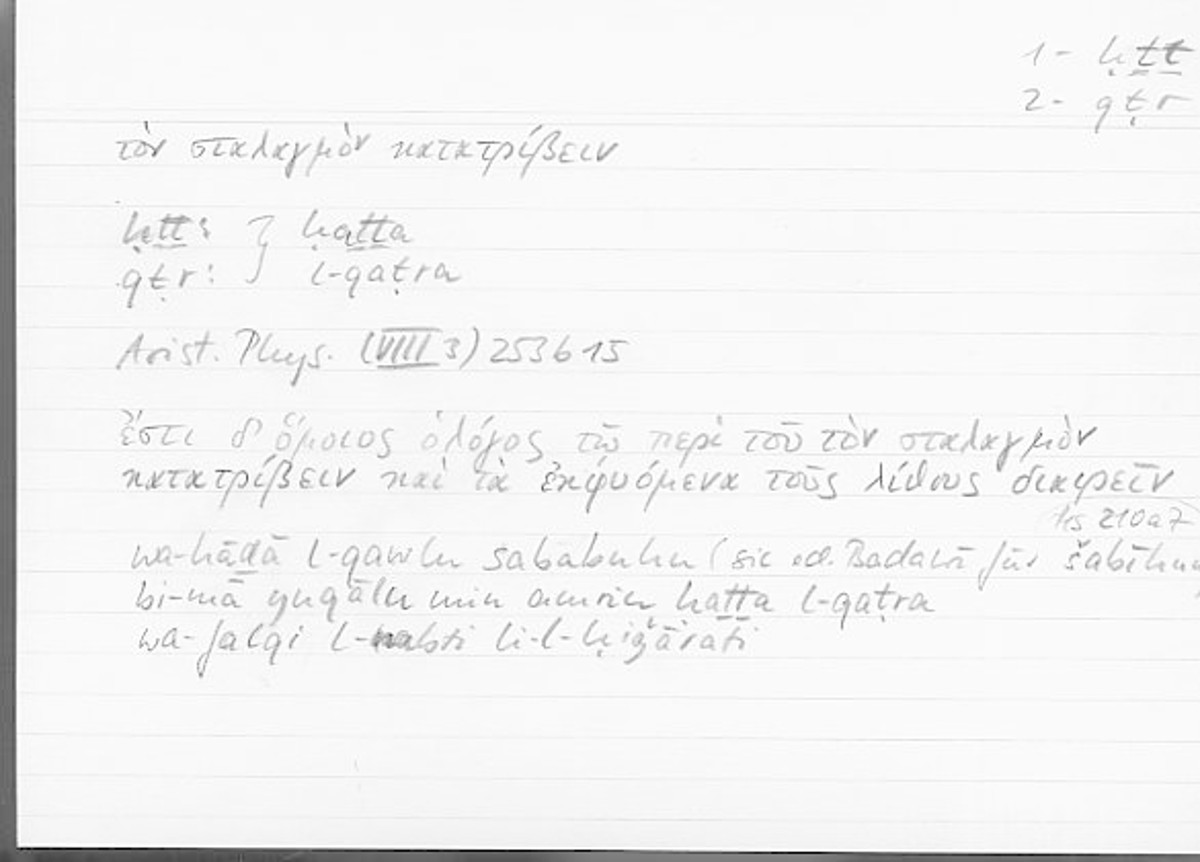 1- ḥṯṯ
2- qṭr
τὸν σταλαγμὸν κατατρίβειν
ḥṯṯ: } ḥaṯṯa
qṭr: l-qaṭra
Arist. Phys. (VIII 3) 253b15
ἔστι δ' ὅμοιος ὁ λόγος τῷ περὶ τοῦ τὸν σταλαγμὸν
κατατρίβειν καὶ τὰ ἐκφυόμενα τοὺς λίθους διαιρεῖν
Hs 210a7
wa-hāḏā l-qawlu sababuhu (sic ed. Badawī für šabīhun
bi-mā yuqālu min amri ḥaṯṯa l-qaṭra
wa-falqi l-nabti li-l-ḥiǧārati